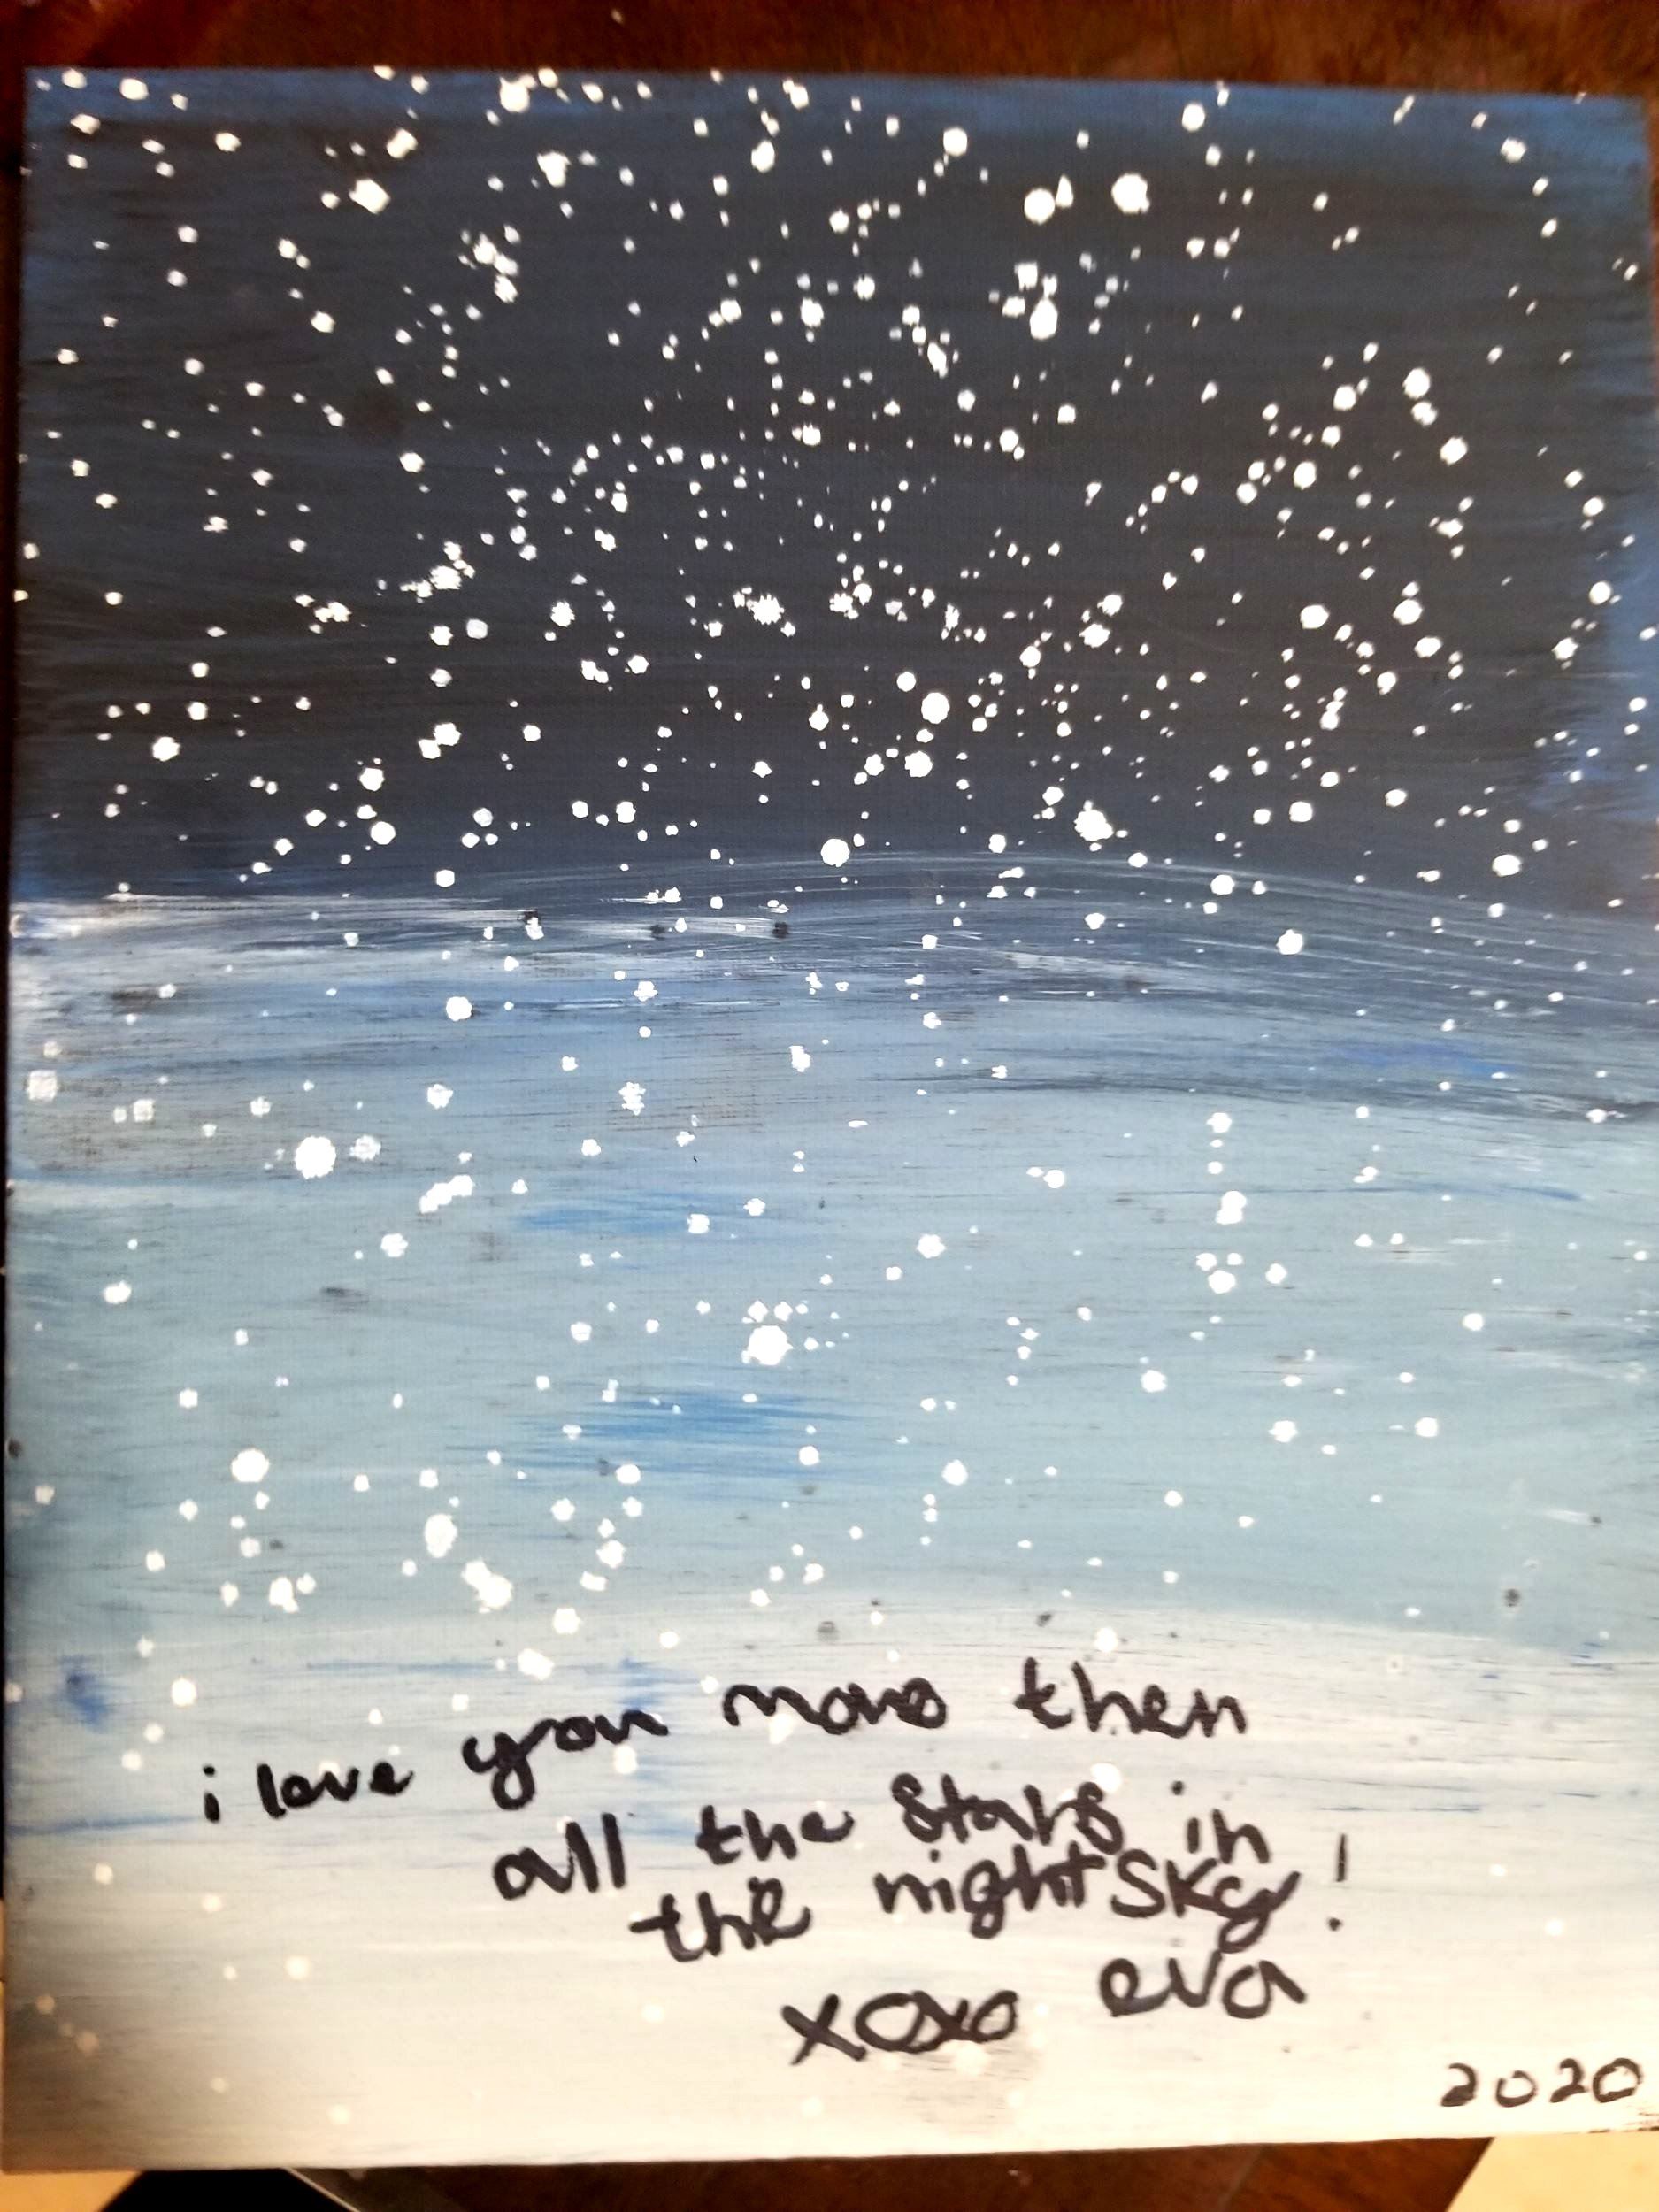 i love you more then
all the stars in
the night sky!
xoxo eva
2020